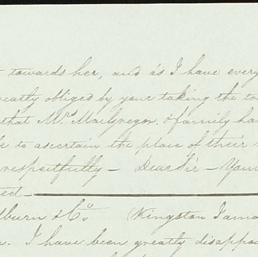 towards her, and as I have every
greatly obliged by your taking the
that Mrs. MacGregor, & family ha
to ascertain the place of their
respectfully — Dear Sir — You
lburn & Co. Kingston Jama
I have been greatly disappo